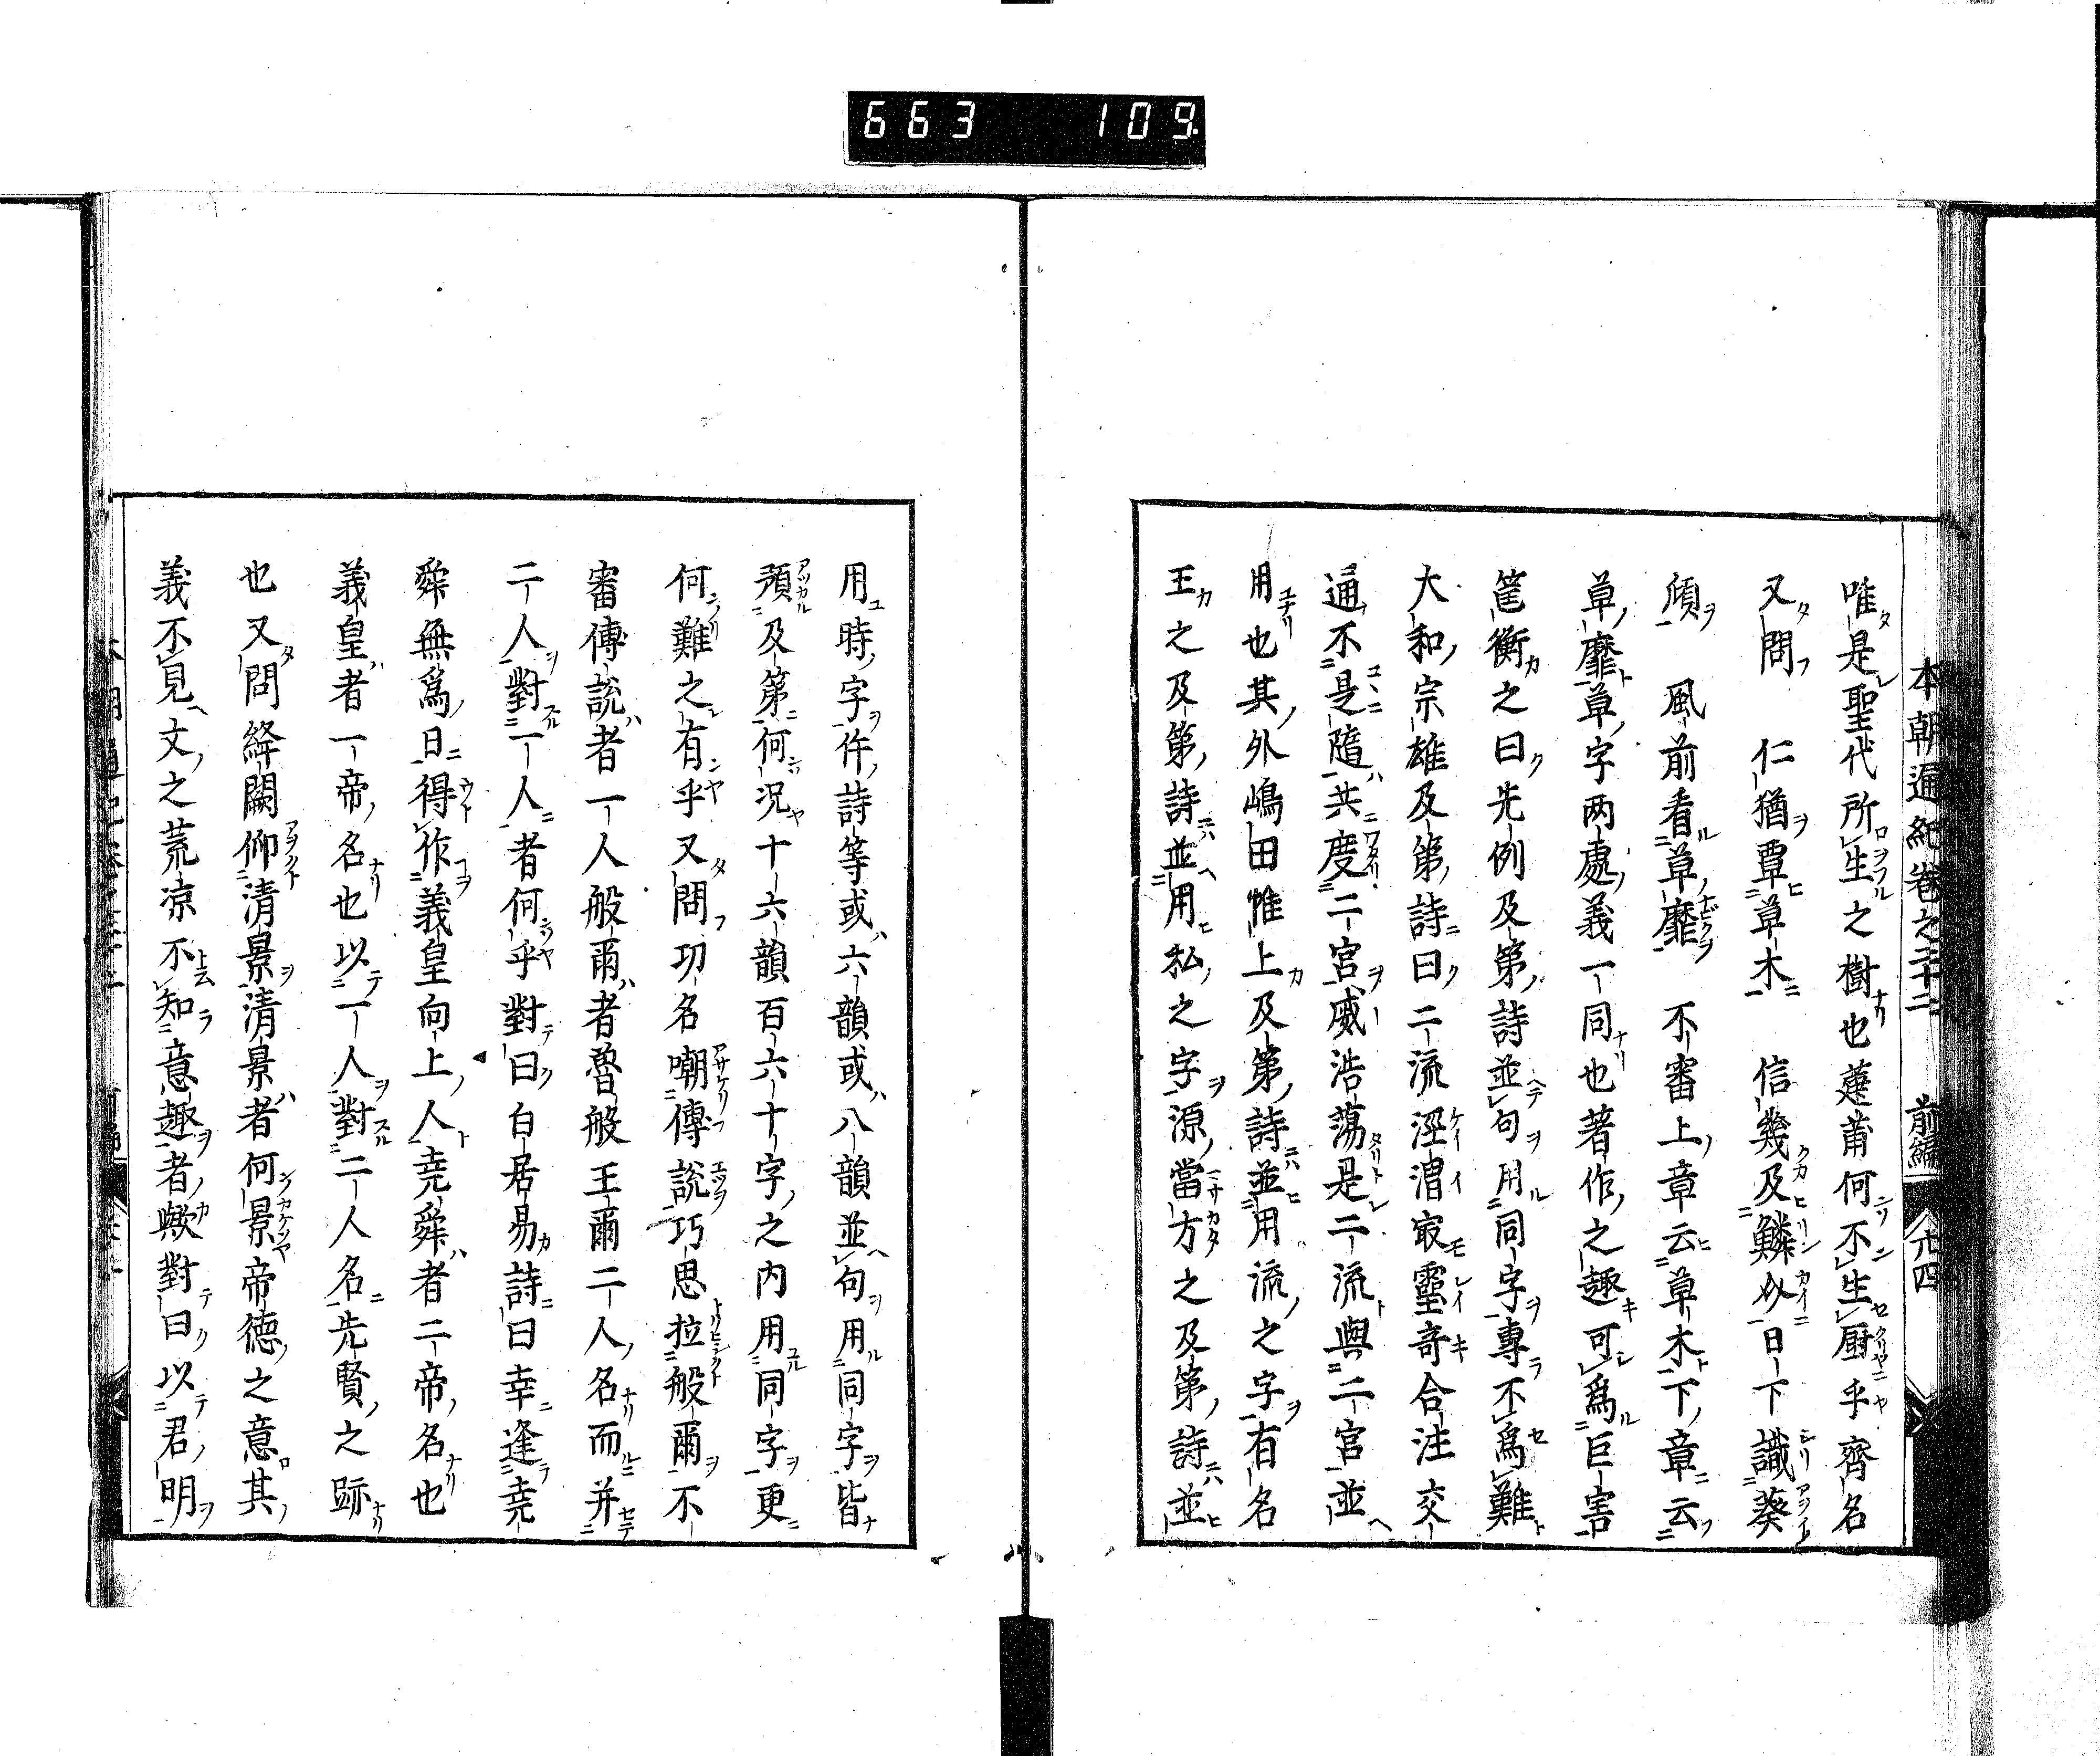 663 109
本朝通紀卷之三十二 前編 廿四
唯是聖代所生之樹也蓮莆何不生厨乎齊名
又問 仁猶覃草木 信幾及鱗介日下識葵
傾 風前看草靡 不審上章云草木下章云
草靡草字两處義一同也著作之趣可爲巨害
筐衡之曰先例及第詩並句用同字專不爲難
大和宗雄及第詩曰二流涇渭㝡靈奇合注交
通不是隨共度二宮威浩蕩是二流與二宮並
用也其外嶋田惟上及第詩並用流之字有名
王之及第詩並用私之字源當方之及第詩並
用時字件詩等或六韻或八韻並句用同字皆
預及第何況十六韻百六十字之内用同字更
何難之有乎又問功名嘲傳説巧思拉般爾不
審傳説者一人般爾者魯般王爾二人名而并
二人對一人者何乎對曰白居易詩曰幸逢堯
舜無爲日得作義皇向上人堯舜者二帝名也
義皇者一帝名也以一人對二人名先賢之跡
也又問絳闕仰清景清景者何景帝徳之意其
義不見文之荒凉不知意趣者歟對曰以君明